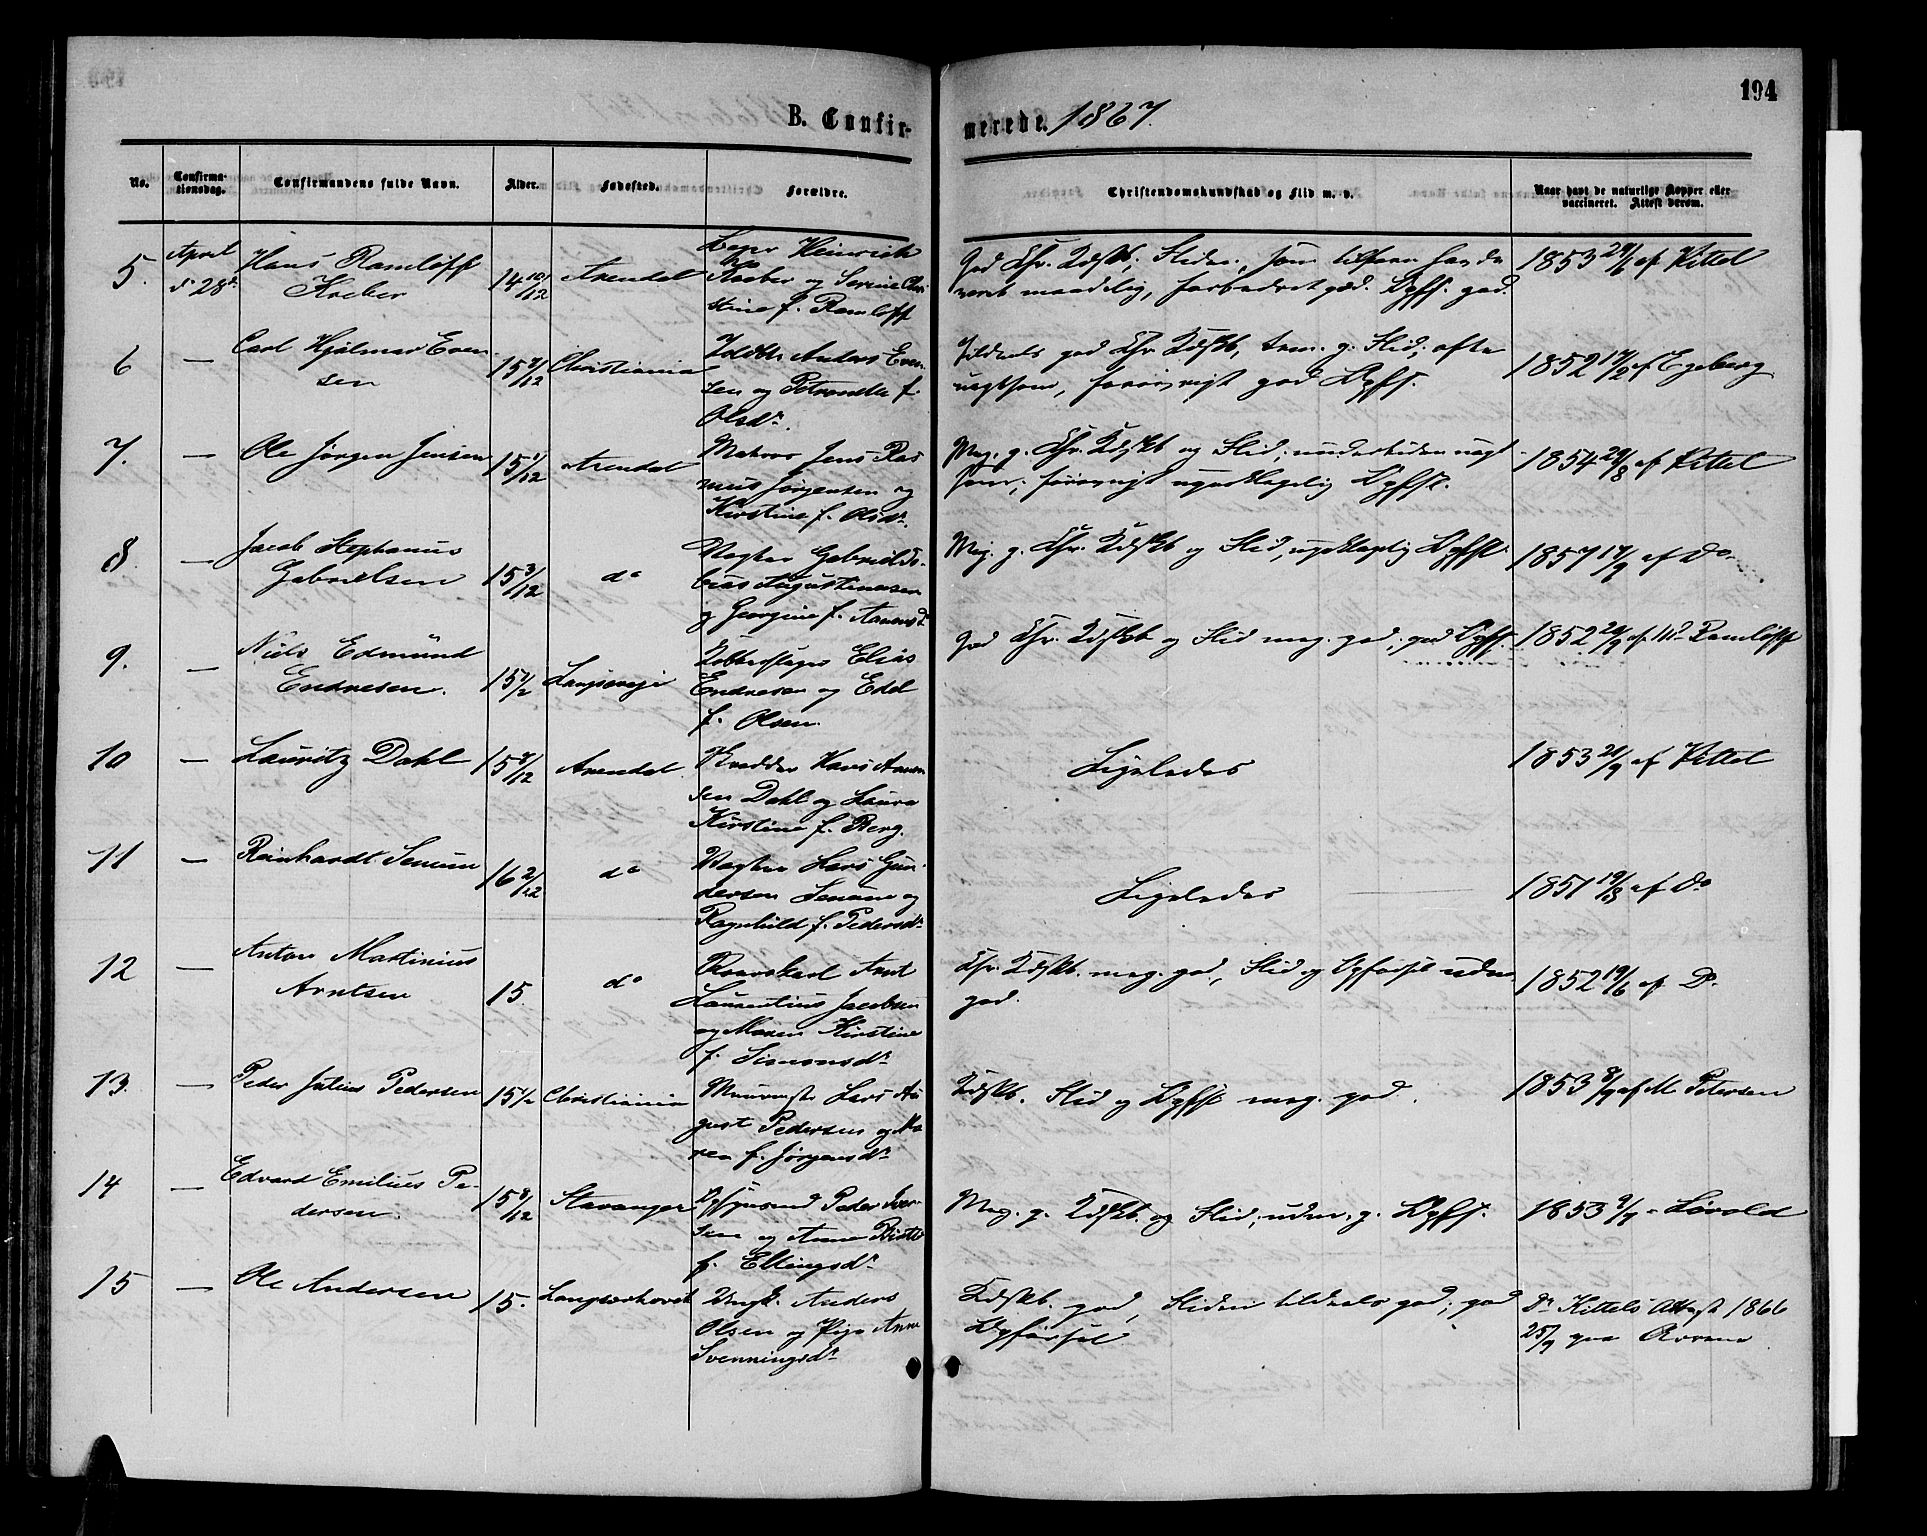 194
B. Confirmerede. 1867.
No.
Confirmationsdag.
Confirmandens fulde Navn.
Alder.
Fødested.
Forældre.
Christendomskundskab og Flid m. v.
Naar havt de naturlige Kopper eller
vaccineret. Attest derom.
5. April d. 28de Hans Ramløff Arendal
Kroeber 14 10/12
Heinrich
Kroeber og Serine Chri
stine f. Ramløff
God Chr. Kdskb.; Fliden, som tilforn havde
været maadelig, forbedret god. Opfs. god.
1853 af Kittel
6 — Carl Hjalmar Even
sen 15 Christiania
Anders Even
sen og Petronelle f.
Olsdr.
Tildeels god Chr. Kdskb., tem. g. Flid; ofte
uagtsom, forøvrigt god Opfs.
1852 af Egeberg
7. — Ole Jørgen Jensen 15 1/12 Arendal
Matros Jens Ras
mus Jørgensen og
Kirstine f. Olsdr.
Meg. g. Chr. Kdskb og Flid; undertiden uagt
som, forøvrigt upaaklagelig Opfsl.
1854 29/8 af Kittel
8. — Jacob Stephanus
Gabrielsen 15 3/12 do
Vægter Gabriel To
bias Augustinussen
og Georgine f. Aanensdr
Meg. g. Chr. Kdskb og Flid, upaaklagelig Opfsl.
1857 17/9 af Do
9. — Niels Edmund
Endresen. 15 1/2 Langsæveje
Kobberslager Elias
Endresen og Edel
f. Olsen.
God Chr. Kdskb og Flid meg. god; god Opfs.
1852 af Ramløff
10 — Lauritz Dahl 15 Arendal
Skrædder Hans Aanen
sen Dahl og Laura
Kirstine f. Berg.
Ligeledes
1853 af Kittel
11 — Reinhardt Senum 16 2/12 do
Vægter Lars Gun
dersen Senum og
Ragnhild f. Pedersdr
Ligeledes
1851 19/8 af Do
12 — Anton Martinius
Arntsen 15. do
Arnt
Laurentius Jacobsen
og Maren Kirstine
f. Simonsdr
Chr. Kdskb. meg. god, Flid og Opførsel udm.
god.
1852 19/6 af Do
13. — Peder Julius Pedersen 15 1/2 Christiania
Muurmstr Lars Au
gust Pedersen og Ma
ren f. Jørgensdr
Kdskb. Flid og Opfsl meg. god.
1853 8/9 af M Petersen
14 — Edvard Emilius Pe
dersen. 15 8/12 Stavanger
Opsynsmd Peder Iver
sen og Anne Birthe
f. Ellingsdr
Meg. g. Kdskb. og Flid; udm. g. Opfs.
1853 9/9 Løvold
15 — Ole Andersen 15. Langsækovet
Ungk. Anders
Olsen og Pige Anne
Svenningsdr
Kdskb. god, Fliden tildeels god; god
Opførsel
Dr Kittels Attest 1866
25/9